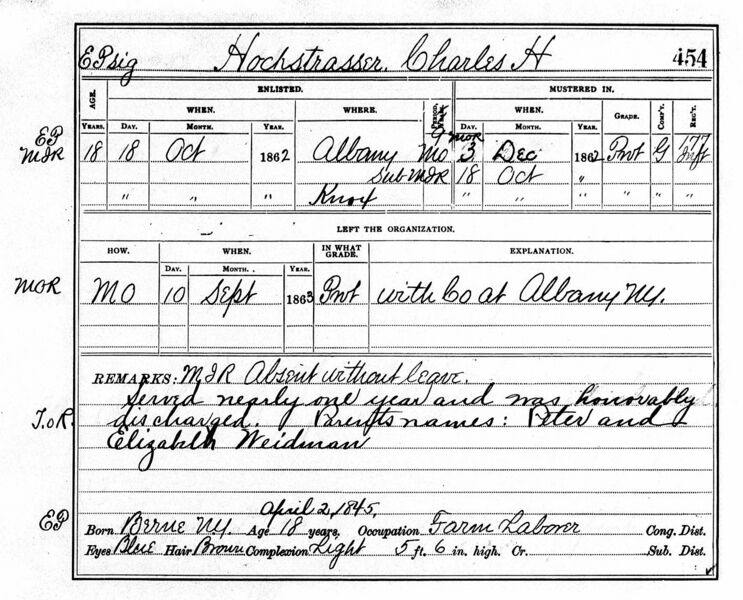 EP sig Hochstrasser, Charles H 454
ENLISTED. MUSTERED IN.
AGE. WHEN. WHERE. PERIOD WHEN. GRADE. COMP'Y. REG'T.
YEARS. DAY. MONTH. YEAR. DAY. MONTH. YEAR.
EP MOR 177
MIR 18 18 Oct 1862 Albany Mo 3 Dec 1862 Pvt G Inft
Sub MIR 18 Oct "
" " " Knox " " " " " "
LEFT THE ORGANIZATION.
HOW. WHEN. IN WHAT GRADE. EXPLANATION.
DAY. MONTH. YEAR.
MOR MO 10 Sept 1863 Pvt with Co at Albany NY.
REMARKS: MIR Absent without leave.
Served nearly one year and was honorably
T.o.R. discharged. Parents names: Peter and
Elizabeth Weidman
April 2, 1845,
EP Born Berne NY. Age 18 years. Occupation Farm Laborer Cong. Dist.
Eyes Blue Hair Brown Complexion Light 5 ft. 6 in. high. Cr. Sub. Dist.